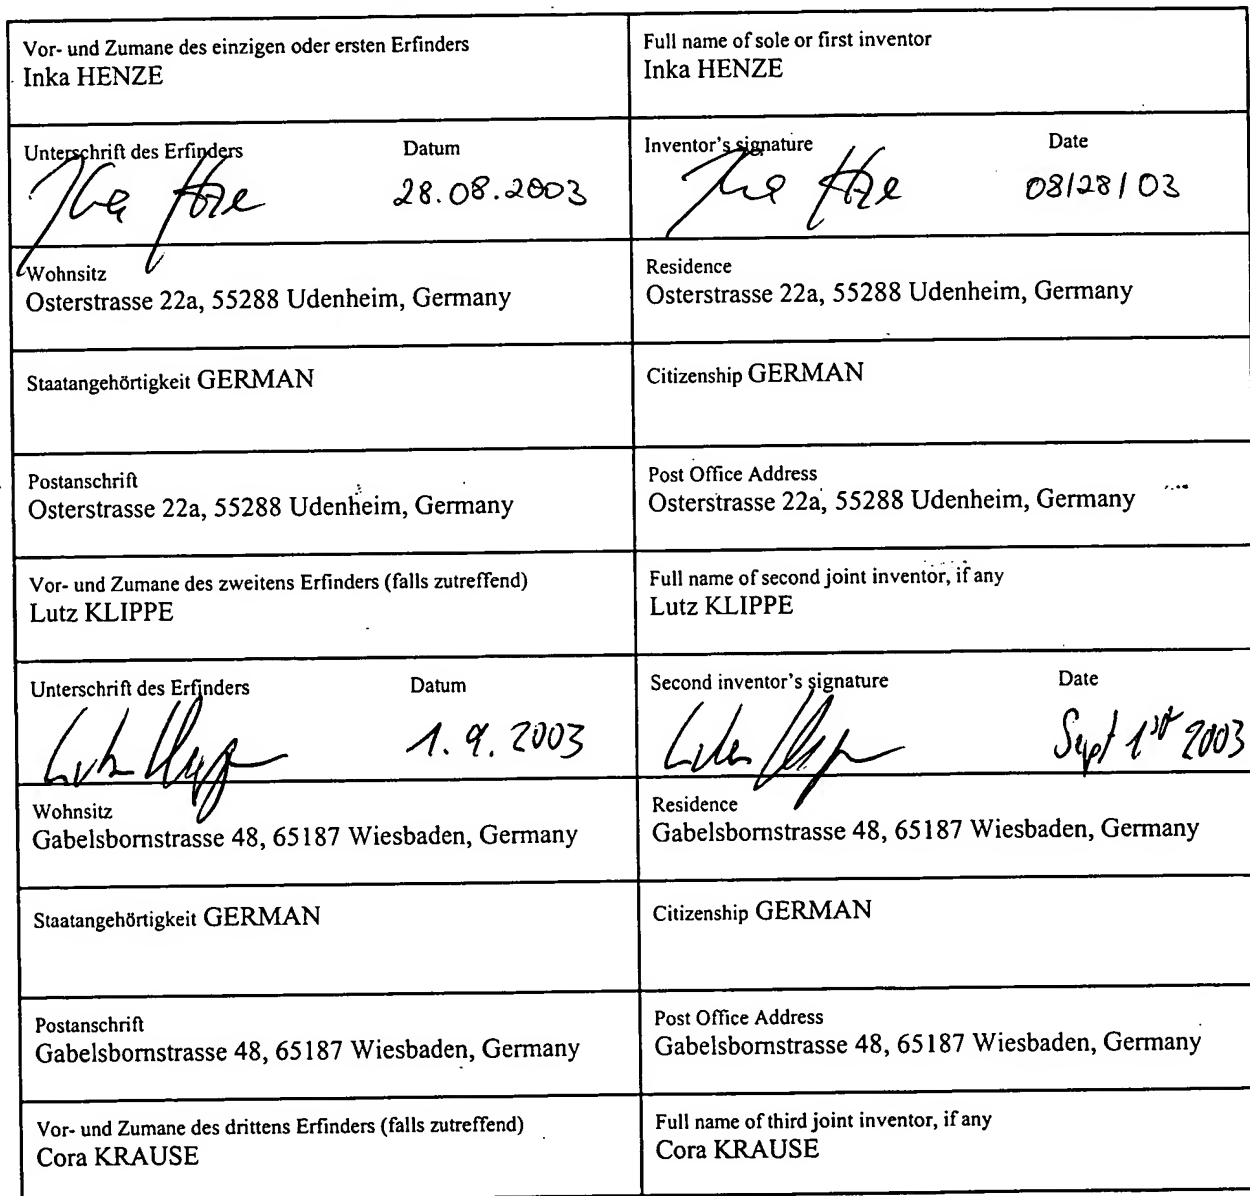 Vor- und Zumane des einzigen oder ersten Erfinders
Inka HENZE
Full name of sole or first inventor
Inka HENZE
Unterschrift des Erfinders Datum
28.08.2003
Inventor's signature Date
08/28/03
Wohnsitz
Osterstrasse 22a, 55288 Udenheim, Germany
Residence
Osterstrasse 22a, 55288 Udenheim, Germany
Staatangehörtigkeit GERMAN
Citizenship GERMAN
Postanschrift
Osterstrasse 22a, 55288 Udenheim, Germany
Post Office Address
Osterstrasse 22a, 55288 Udenheim, Germany
Vor- und Zumane des zweitens Erfinders (falls zutreffend)
Lutz KLIPPE
Full name of second joint inventor, if any
Lutz KLIPPE
Unterschrift des Erfinders Datum
1. 9. 2003
Second inventor's signature Date
Sept 1st 2003
Wohnsitz
Gabelsbornstrasse 48, 65187 Wiesbaden, Germany
Residence
Gabelsbornstrasse 48, 65187 Wiesbaden, Germany
Staatangehörtigkeit GERMAN
Citizenship GERMAN
Postanschrift
Gabelsbornstrasse 48, 65187 Wiesbaden, Germany
Post Office Address
Gabelsbornstrasse 48, 65187 Wiesbaden, Germany
Vor- und Zumane des drittens Erfinders (falls zutreffend)
Cora KRAUSE
Full name of third joint inventor, if any
Cora KRAUSE